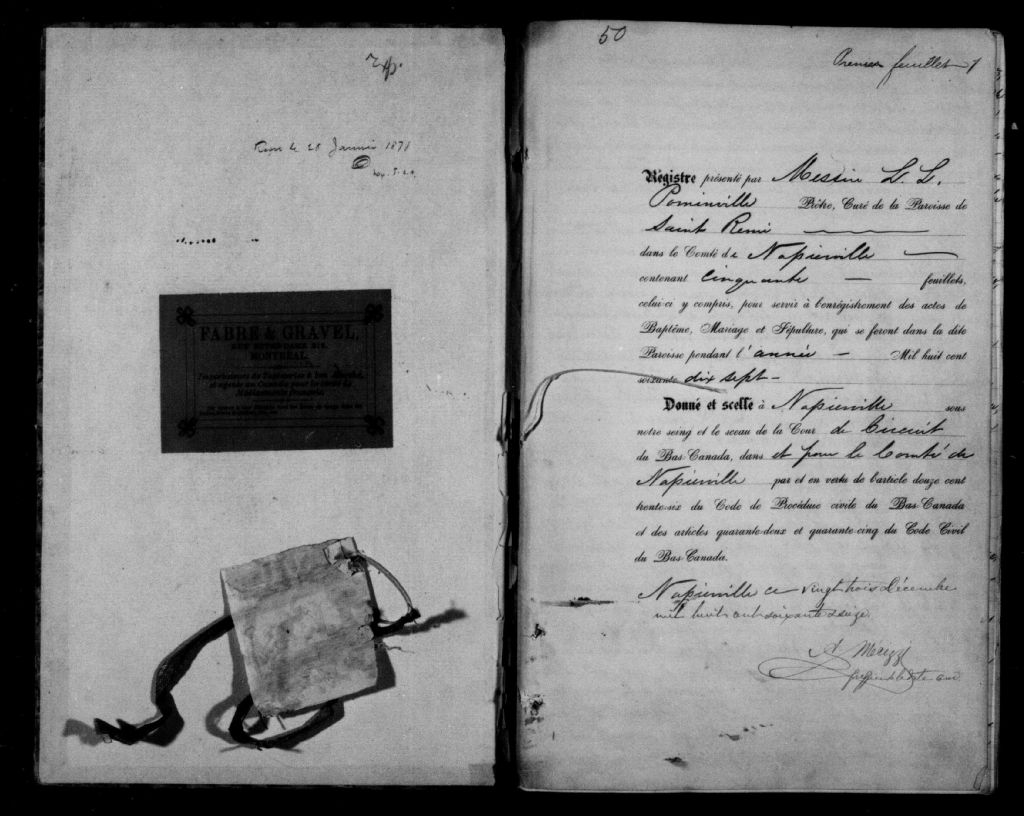 28 Janvier 1878
FABRE & GRAVEL,
RUE NOTRE-DAME 219,
MONTREAL.
50
Premier feuillet
Régistre présenté par Messire L. L.
Pominville Prêtre, Curé de la Paroisse de
Saint Remi
dans le Comté de Napierville
contenant Cinquante feuillets,
celui-ci y compris, pour servir à l'enrégistrement des actes de
Baptême, Mariage et Sépulture, qui se feront dans la dite
Paroisse pendant l'année Mil huit cent
soixante dix sept
Donné et scellé à Napierville sous
notre seing et le sceau de la Cour de Circuit
du Bas-Canada, dans et pour le Comté de
Napierville par et en vertu de l'article douze cent
trente-six du Code de Procédure civile du Bas-Canada
et des articles quarante-deux et quarante-cinq du Code Civil
du Bas-Canada.
Napierville ce vingt trois Décembre
mil huit cent soixante & seize.